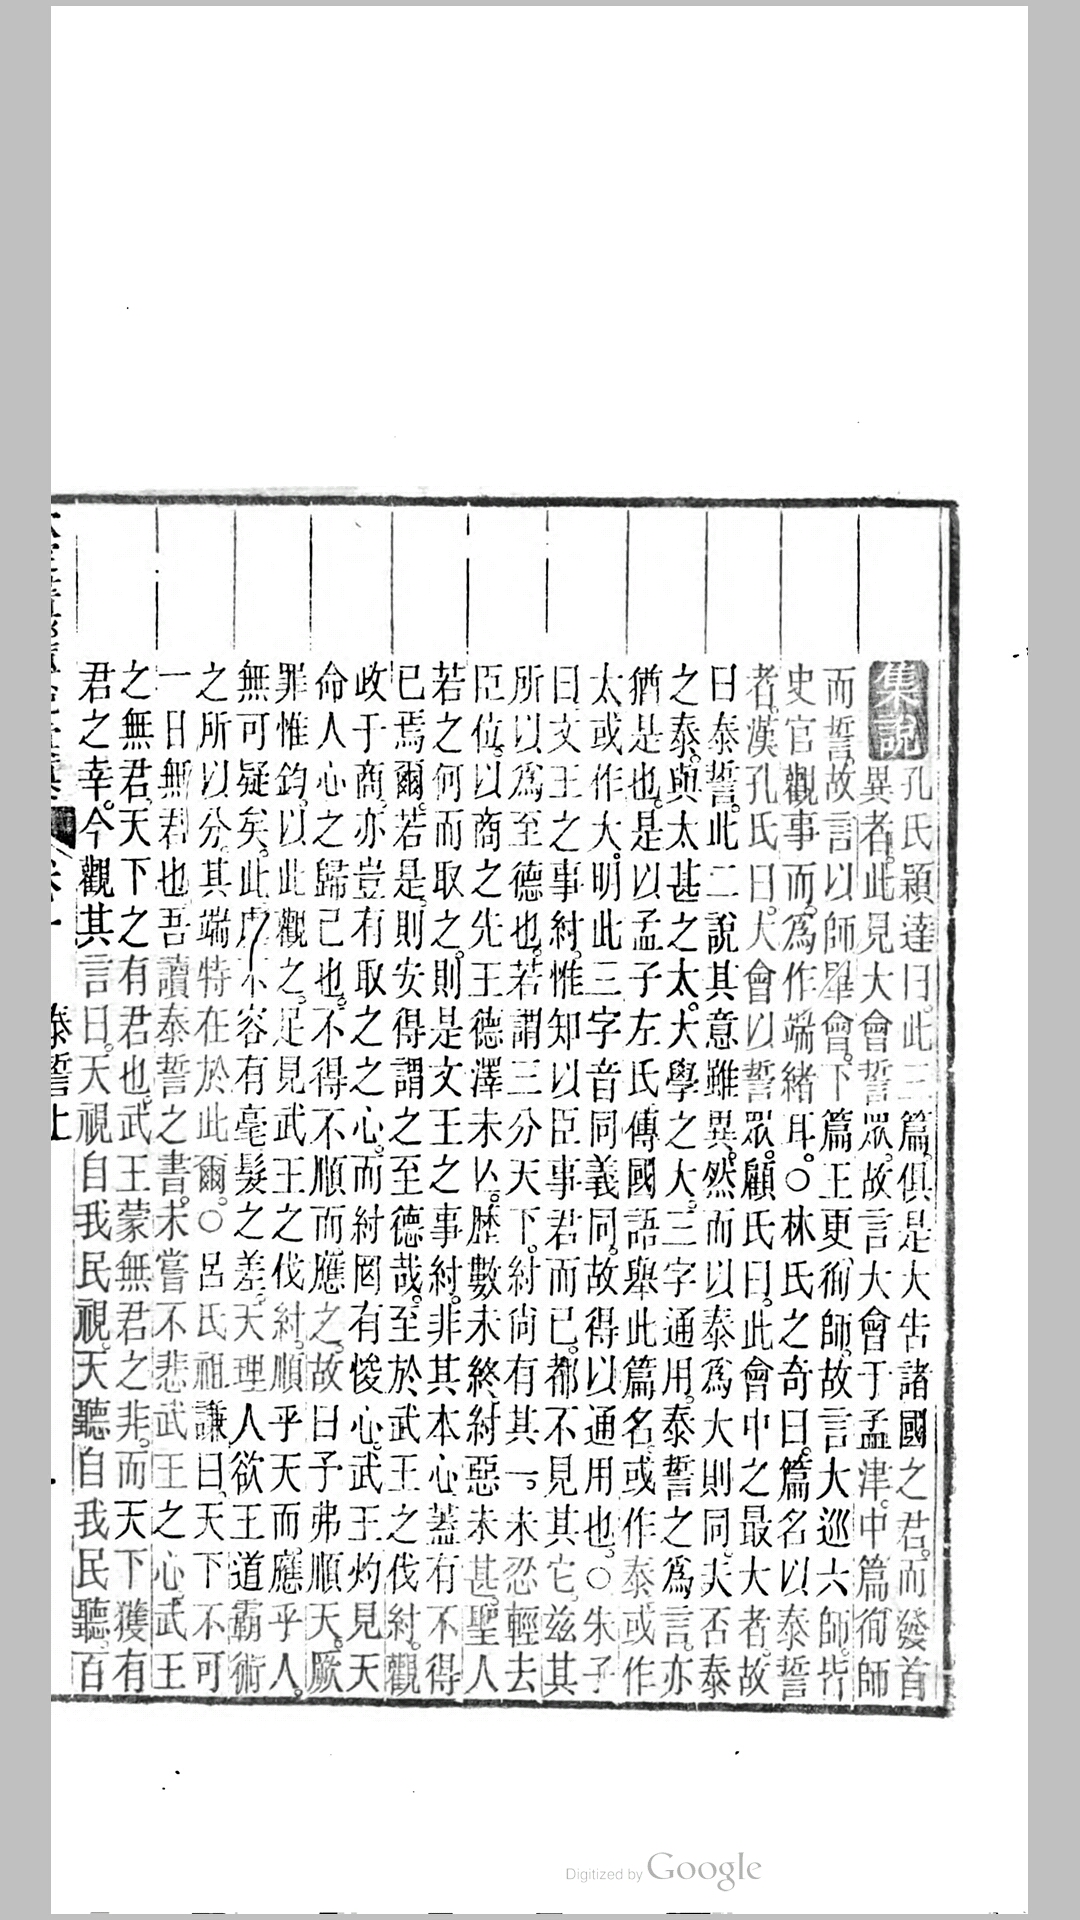 集說
孔氏穎達曰。此三篇俱是大告諸國之君。而發首
異者。此見大會誓眾。故言大會于孟津。中篇徇師
而誓。故言以師畢會。下篇王更徇師。故言大巡六師。皆
史官觀事而爲作端緒耳。○林氏之奇曰。篇名以泰誓
者。漢孔氏曰。大會以誓眾。顧氏曰。此會中之最大者。故
曰泰誓。此二說其意雖異。然而以泰爲大則同。夫否泰
之泰。與太甚之太。大學之大。三字通用。泰誓之爲言。亦
猶是也。是以孟子左氏傳國語舉此篇名。或作泰。或作
太。或作大。明此三字音同義同。故得以通用也。○朱子
曰。文王之事紂。惟知以臣事君而已。都不見其它。兹其
所以爲至德也。若謂三分天下。紂尚有其一。未忍輕去
臣位。以商之先王德澤未亾。歷數未終。紂惡未甚。聖人
若之何而取之。則是文王之事紂。非其本心。蓋有不得
已焉爾。若是。則安得謂之至德哉。至於武王之伐紂。觀
政于商。亦豈有取之之心。而紂罔有悛心。武王灼見天
命人心之歸己也。不得不順而應之。故曰予弗順天。厥
罪惟鈞。以此觀之。足見武王之伐紂。順乎天而應乎人。
無可疑矣。此處不容有毫髮之差。天理人欲王道霸術
之所以分。其端特在於此爾。○呂氏祖謙曰。天下不可
一日無君也。吾讀泰誓之書。未嘗不悲武王之心。武王
之無君。天下之有君也。武王蒙無君之非。而天下獲有
君之幸。今觀其言曰。天視自我民視。天聽自我民聽。百
泰誓上
Digitized by Google